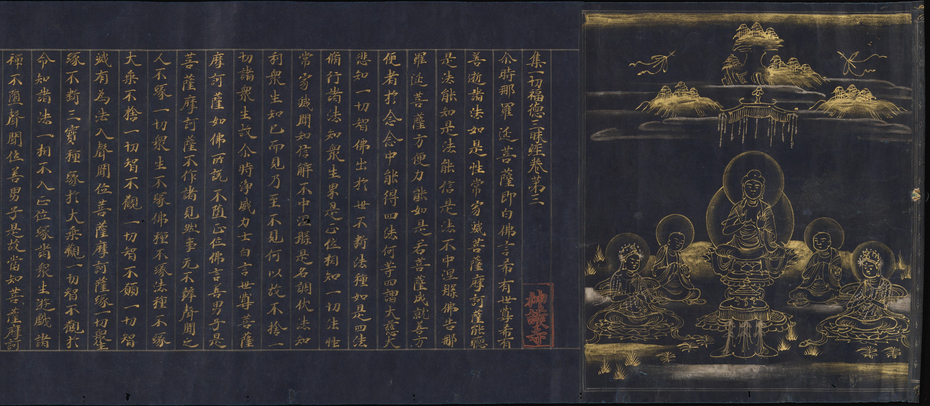 集一切福德三昧経卷第三
尒時那羅延菩薩即白佛言希有世尊希有
善逝諸法如是性常寂滅菩薩摩訶薩能
是法能知是法能信是法不中涅槃佛告那
羅延菩薩方便力能如是若菩薩成就善方
便者於念念中能得四法何等四謂大慈大
悲知一切智佛出於世不断法種如是四法
脩行諸法知衆生界是正位相知一切法性
常寂滅聞知信解不中涅槃是名調伏法知
利衆生知已而見乃至不見何以故不捨一
切諸衆生故尒時淨威力士白言世尊菩薩
摩訶薩如佛所說不墮正位佛言善男子是
菩薩摩訶薩不作諸見聲聞之
人不縁一切衆生不縁佛種不縁法種不縁
大乘不捨一切智不觀一切智不願一切智
滅有為法入聲聞位菩薩摩訶薩縁一切衆生
縁不断三寶種縁於大乘觀一切智不觀於
令知諸法一相不入正位縁諸衆生遊戲諸
禪不墮聲聞位善男子是故當知菩薩摩訶
神護寺